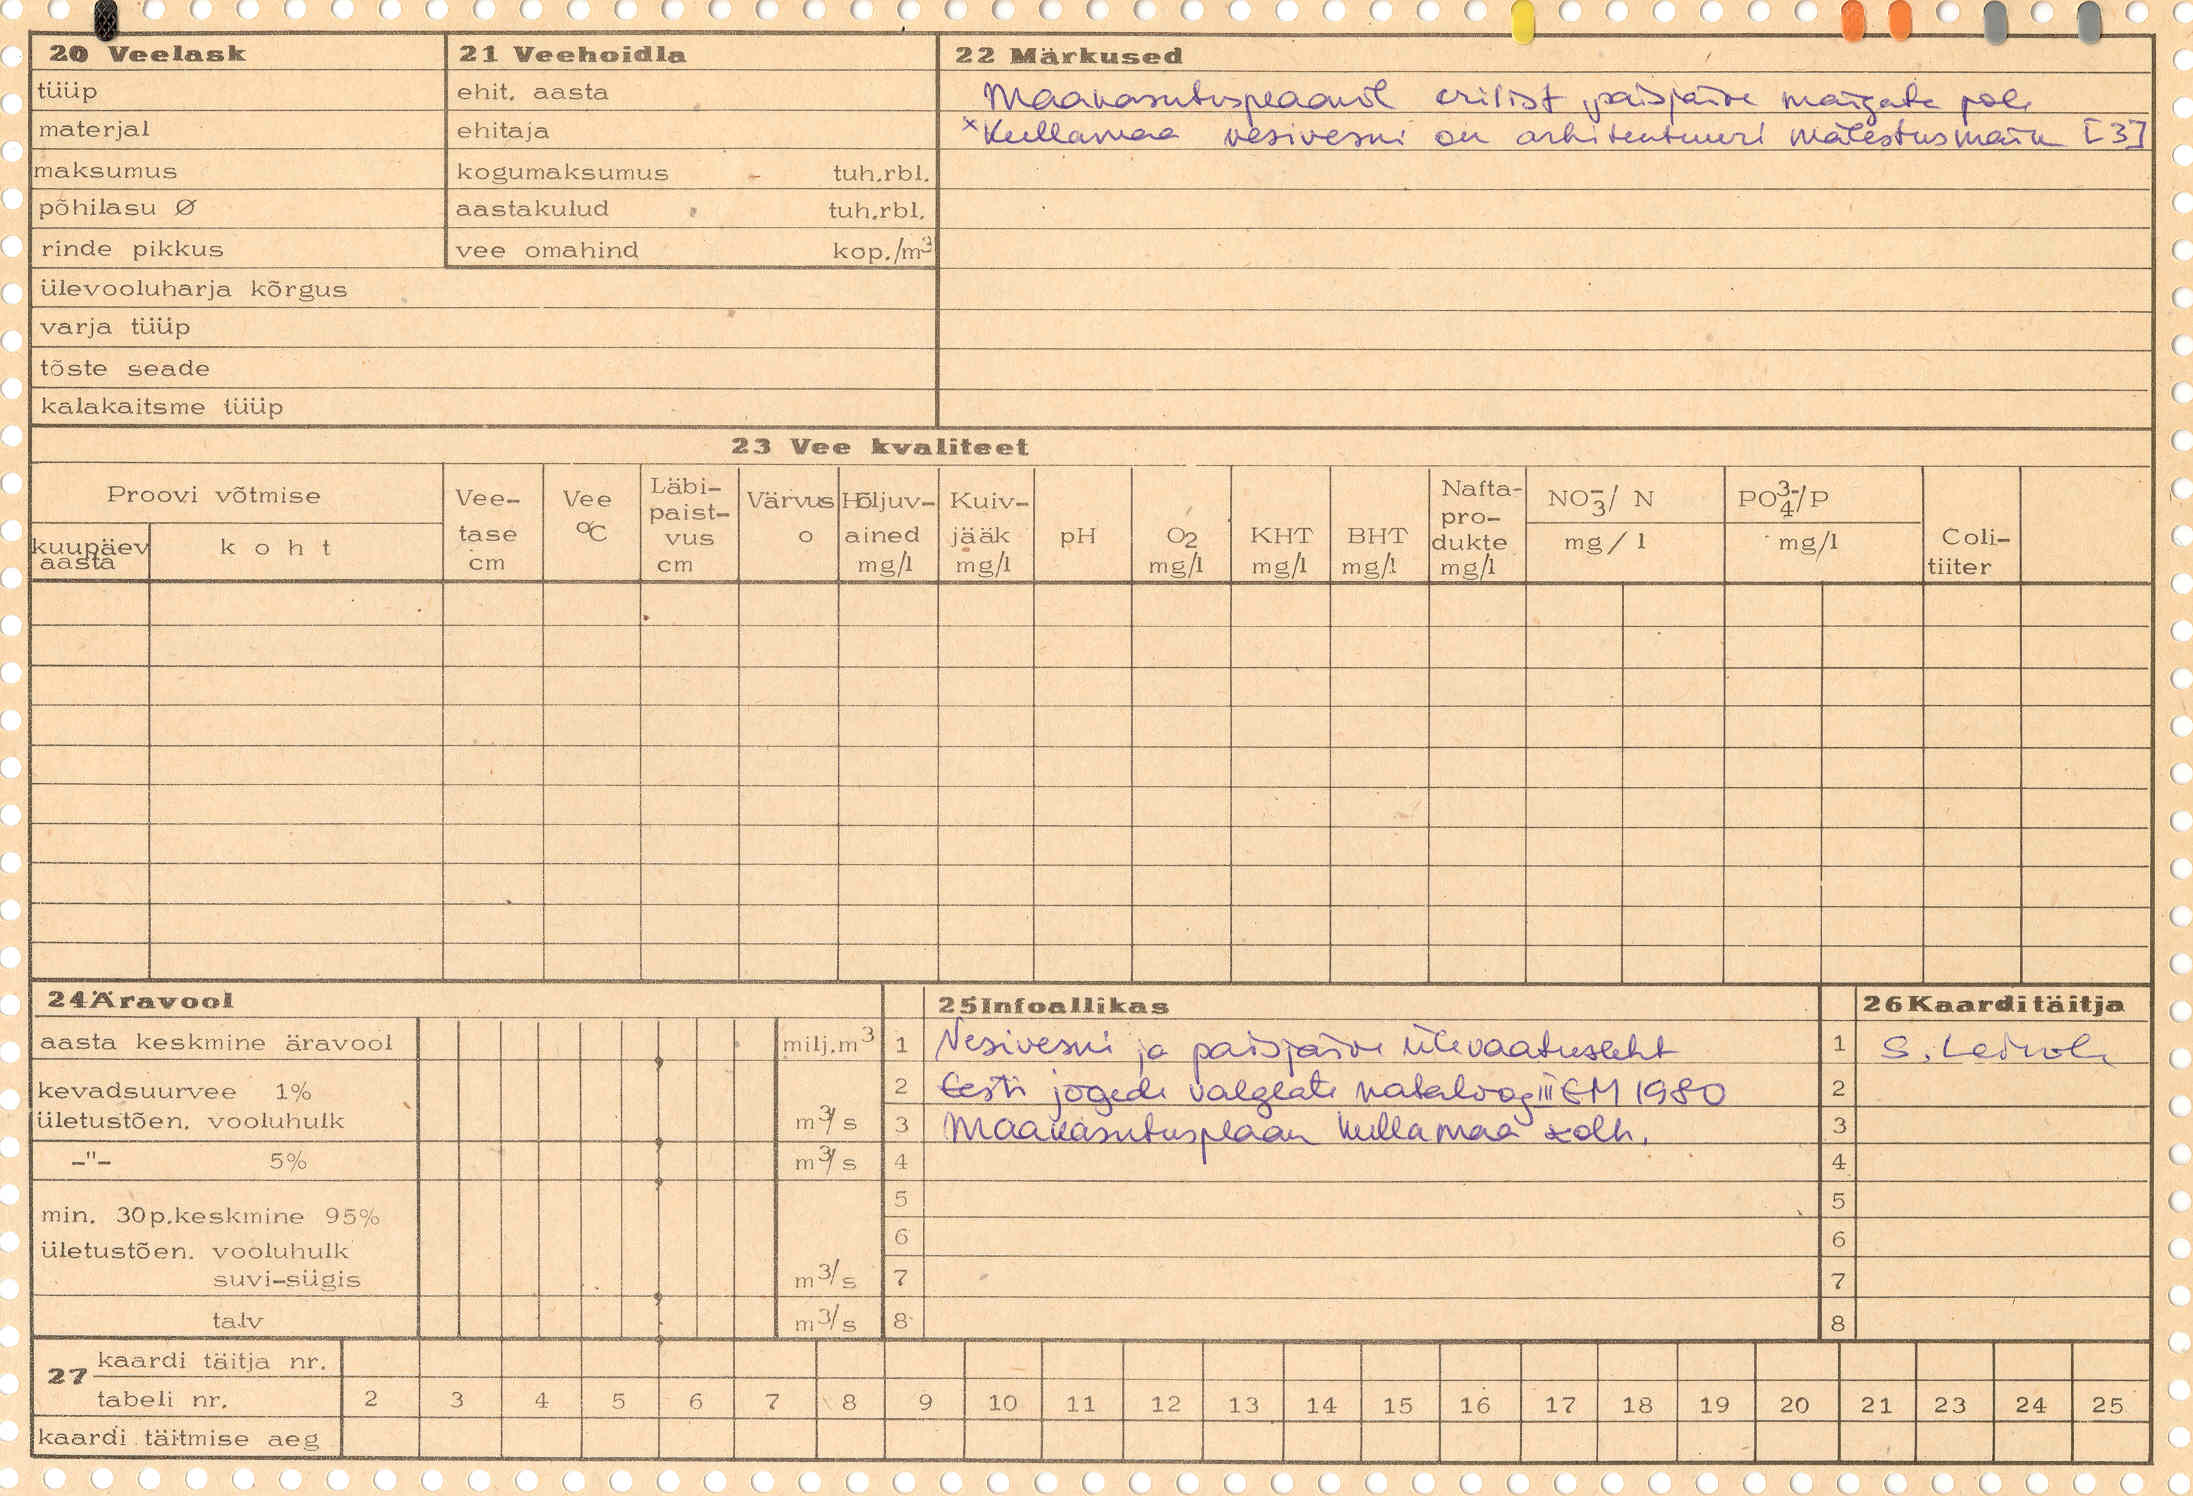 20 Veelask
tüüp
materjal
maksumus
põhilasu Ø
rinde pikkus
ülevooluharja kõrgus
varja tüüp
tõste seade
kalakaitsme tüüp
21 Veehoidla
ehit. aasta
ehitaja
kogumaksumus - tuh.rbl.
aastakulud tuh.rbl.
vee omahind kop./m³
22 Märkused
Maakasutusplaanil erilist paisjärve märgata pole
×Kullamaa vesiveski on arhitektuuri mälestusmärk [3]
23 Vee kvaliteet
Proovi võtmise
kuupäev aasta
koht
Vee-
tase
cm
Vee
°C
Läbi-
paist-
vus
cm
Värvus
o
Hõljuv-
ained
mg/l
Kuiv-
jääk
mg/l
pH
O2
mg/l
KHT
mg/l
BHT
mg/l
Nafta-
pro-
dukte
mg/l
NO₃⁻/ N
mg/l
PO₄³⁻/P
mg/l
Coli-
tiiter
24 Äravool
aasta keskmine äravool milj.m³
kevadsuurvee 1%
ületustõen. vooluhulk m³/s
-"- 5% m³/s
min. 30p.keskmine 95%
ületustõen. vooluhulk
suvi-sügis m³/s
talv m³/s
25 Infoallikas
1 Vesiveski ja paisjärve ülevaatusleht
2 Eesti jõgede valglate kataloog III EM 1980
3 Maakasutusplaan Kullamaa kolh.
4
5
6
7
8
26 Kaardi täitja
1
2
3
4
5
6
7
8
27 kaardi täitja nr.
tabeli nr. 2 3 4 5 6 7 8 9 10 11 12 13 14 15 16 17 18 19 20 21 23 24 25
kaardi täitmise aeg